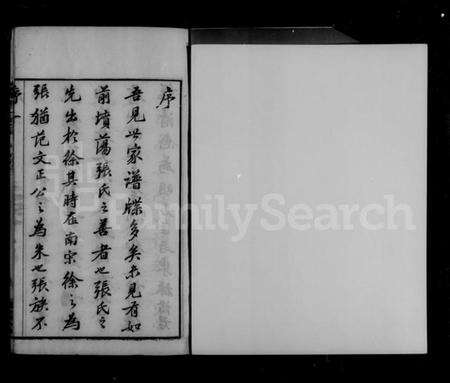 序
吾見世家譜牒多矣未見有如
前墳蕩張氏之善者也張氏之
先出於徐其時在南宗徐之為
張猶范文正公之為朱也張族不
FamilySearch